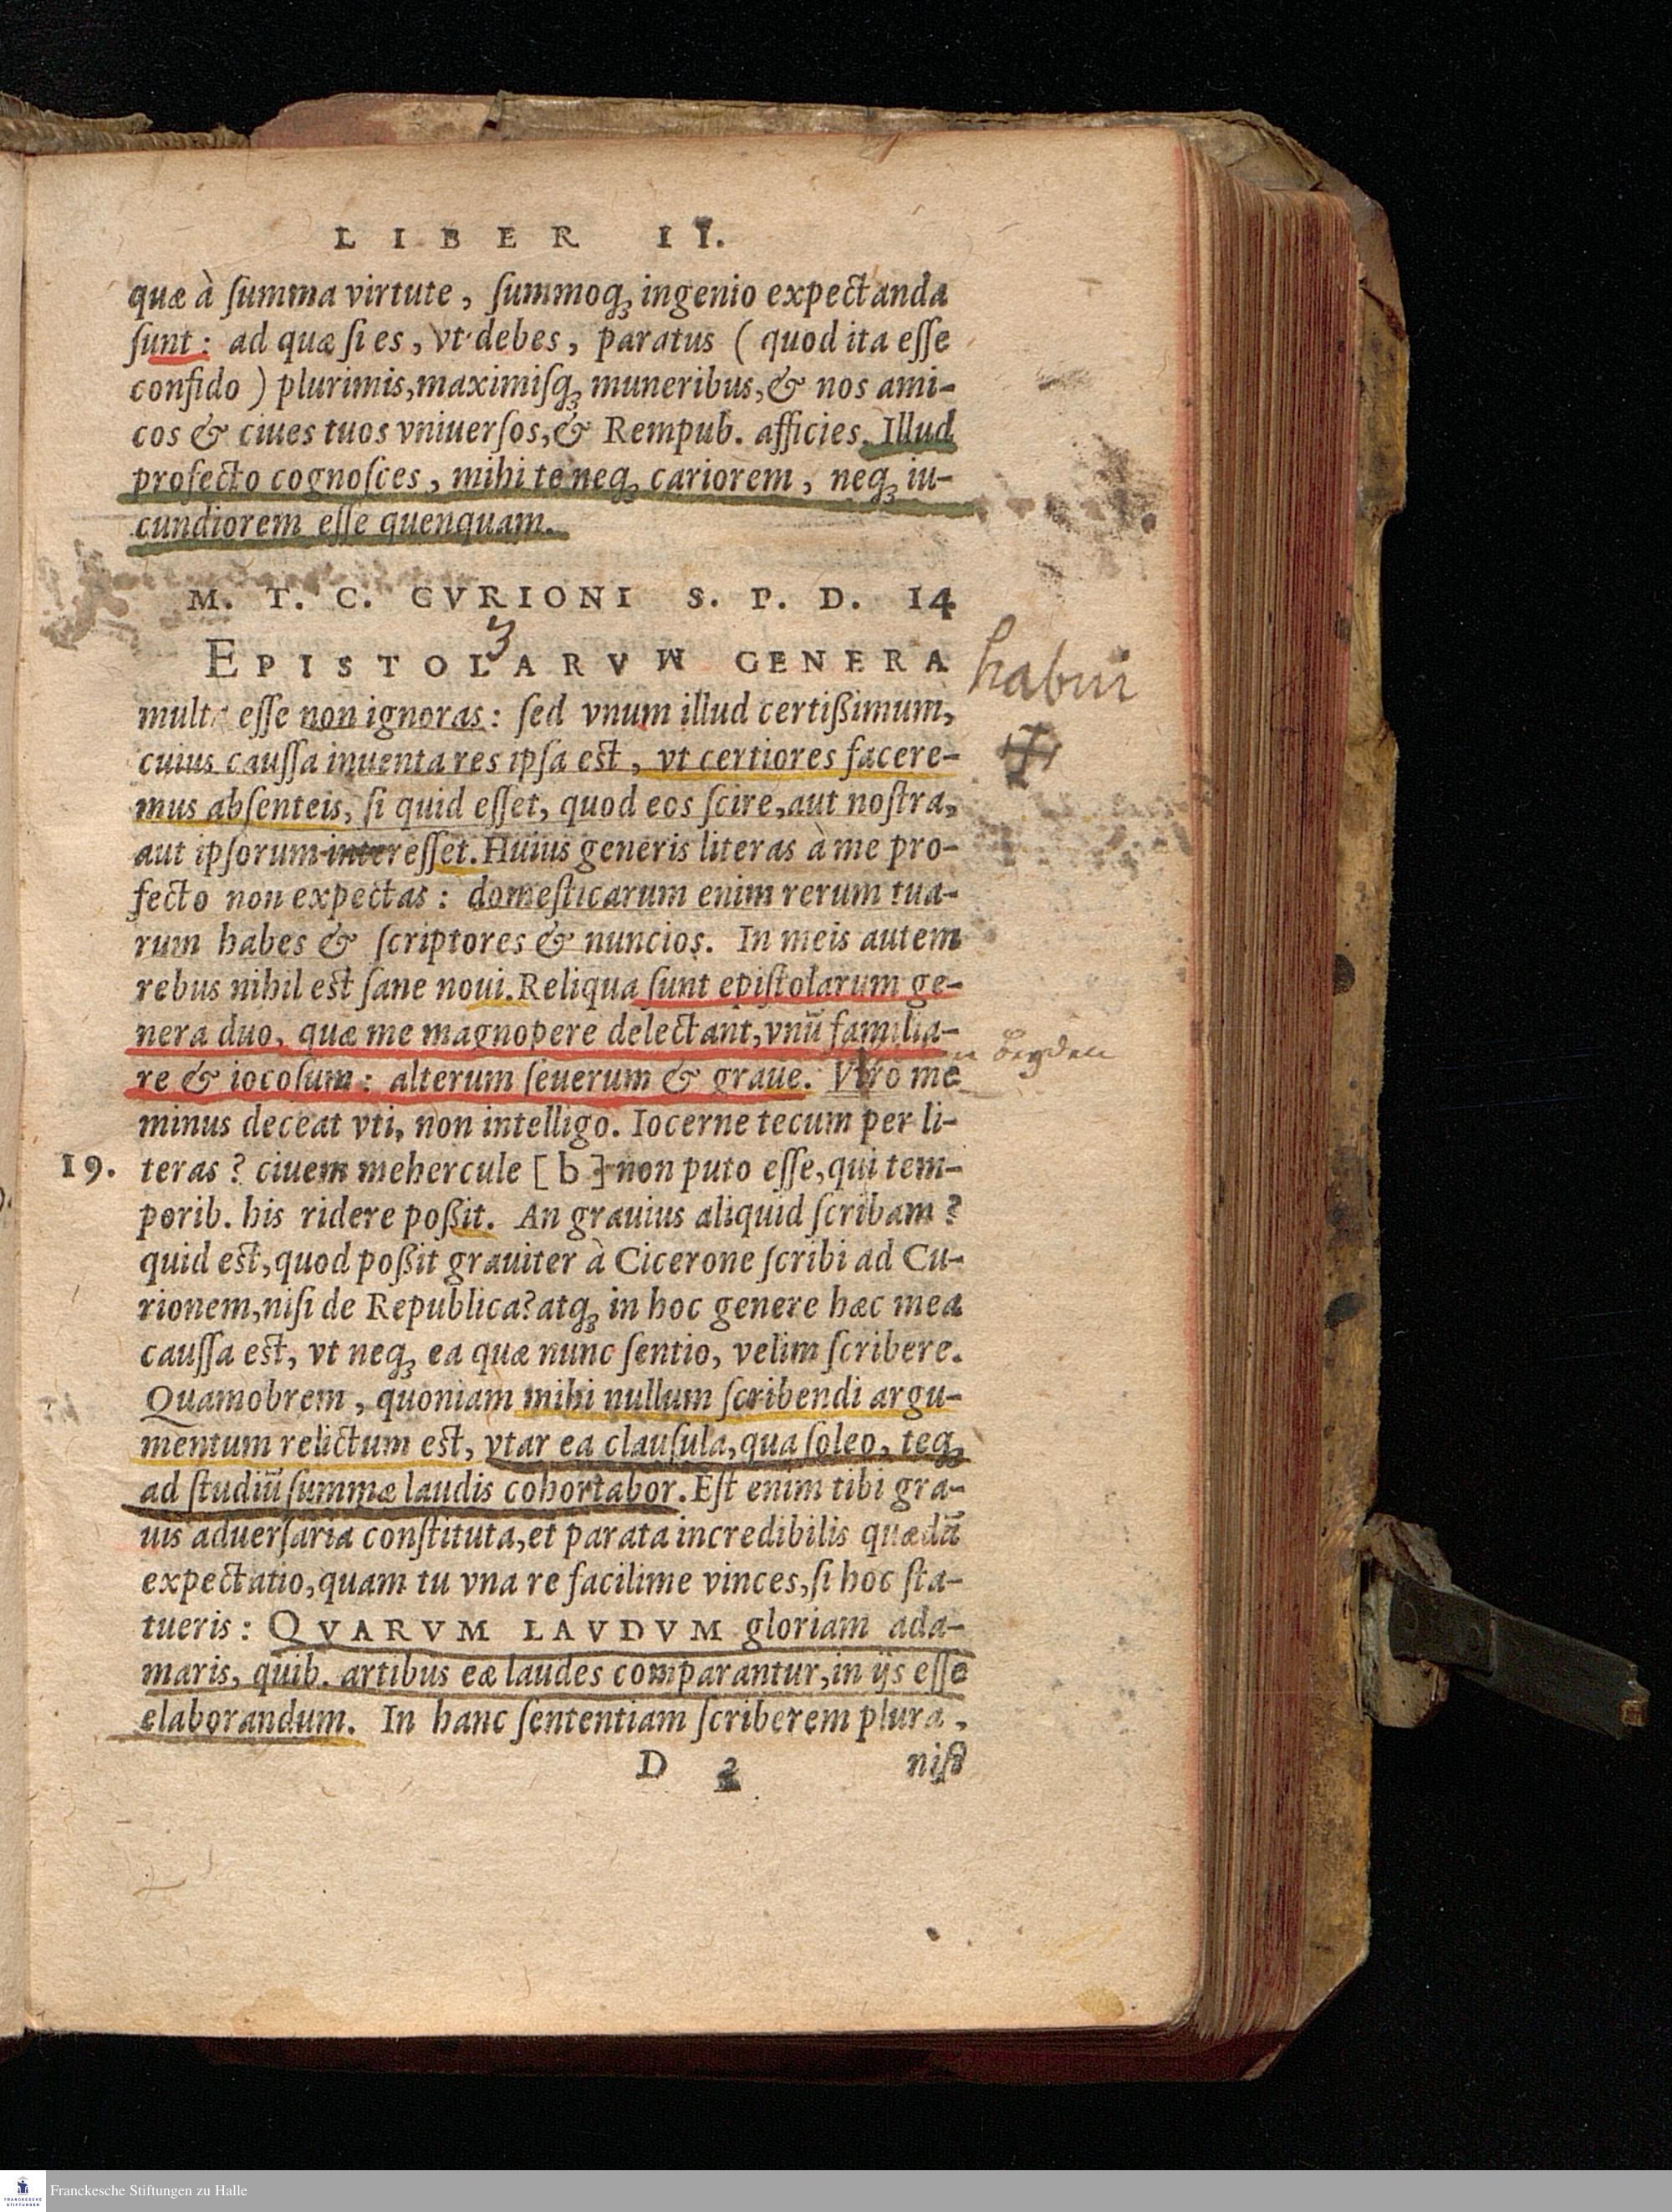 LIBER II.
quæ à ſumma virtute, ſummoq́ꝫ ingenio expectanda
ſunt: ad quæ ſi es, vt debes, paratus (quod ita eſſe
confido) plurimis,maximiſqꝫ muneribus,& nos ami-
cos & ciues tuos vniuerſos,& Rempub. afficies. Illud
profecto cognoſces, mihi te neqꝫ cariorem, neqꝫ iu-
cundiorem eſſe quenquam.
M. T. C. CVRIONI S. P. D. 14
3
EPISTOLARVM GENERA
habui
multa eſſe non ignoras: ſed vnum illud certißimum,
cuius cauſſa inuenta res ipſa est, vt certiores facere-
mus abſenteis, ſi quid eſſet, quod eos ſcire,aut noſtra,
aut ipſorum intereſſet. Huius generis literas à me pro-
fecto non expectas: domeſticarum enim rerum tua-
rum habes & ſcriptores & nuncios. In meis autem
rebus nihil est ſane noui. Reliqua ſunt epiſtolarum ge-
nera duo, quæ me magnopere delectant,vnũ familia-
re & iocoſum: alterum ſeuerum & graue. Vtro me
minus deceat vti, non intelligo. Iocerne tecum per li-
19. teras? ciuem mehercule [b] non puto eſſe,qui tem-
porib. his ridere poßit. An grauius aliquid ſcribam?
quid est,quod poßit grauiter à Cicerone ſcribi ad Cu-
rionem,niſi de Republica?atqꝫ in hoc genere hæc mea
cauſſa est, vt neqꝫ ea quæ nunc ſentio, velim ſcribere.
Quamobrem, quoniam mihi nullum ſcribendi argu-
mentum relictum est, vtar ea clauſula,qua ſoleo, teqꝫ
ad ſtudiũ ſummæ laudis cohortabor. Eſt enim tibi gra-
uis aduerſaria conſtituta,et parata incredibilis quædã
expectatio,quam tu vna re facilime vinces,ſi hoc ſta-
tueris: QVARVM LAVDVM gloriam ada-
maris, quib. artibus eæ laudes comparantur,in ijs eſſe
elaborandum. In hanc ſententiam ſcriberem plura,
D 2 niſi
Franckesche Stiftungen zu Halle